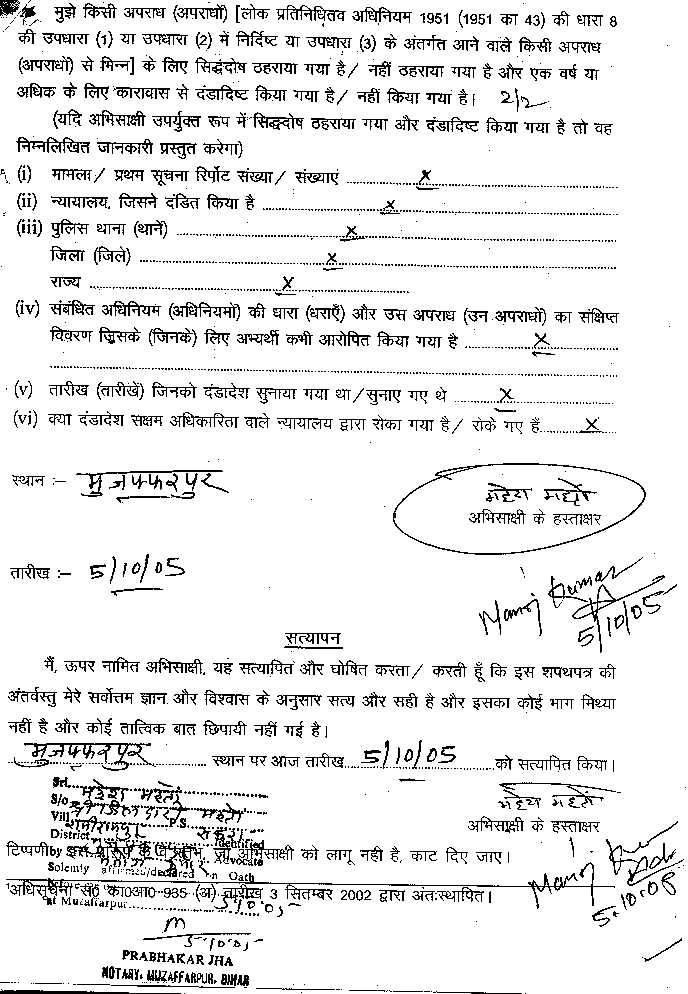 मुझे किसी अपराध (अपराधों) [लोक प्रतिनिधित्व अधिनियम 1951 (1951 का 43) की धारा 8
की उपधारा (1) या उपधारा (2) में निर्दिष्ट या उपधारा (3) के अंतर्गत आने वाले किसी अपराध
(अपराधों) से भिन्न] के लिए सिद्धदोष ठहराया गया है / नहीं ठहराया गया है और एक वर्ष या
अधिक के लिए कारावास से दंडादिष्ट किया गया है / नहीं किया गया है।
(यदि अभिसाक्षी उपर्युक्त रूप में सिद्धदोष ठहराया गया और दंडादिष्ट किया गया है तो वह
निम्नलिखित जानकारी प्रस्तुत करेगा)
(i) मामला / प्रथम सूचना रिर्पोट संख्या / संख्याएं x
(ii) न्यायालय, जिसने दंडित किया है x
(iii) पुलिस थाना (थानें) x
जिला (जिले) x
राज्य x
(iv) संबंधित अधिनियम (अधिनियमों) की धारा (धराएँ) और उस अपराध (उन अपराधों) का संक्षिप्त
विवरण जिसके (जिनके) लिए अभ्यर्थी कभी आरोपित किया गया है x
(v) तारीख (तारीखें) जिनको दंडादेश सुनाया गया था / सुनाए गए थे x
(vi) क्या दंडादेश सक्षम अधिकारिता वाले न्यायालय द्वारा रोका गया है / रोके गए हैं x
स्थान :– मुजफ्फरपुर
अभिसाक्षी के हस्ताक्षर
तारीख :– 5/10/05
Manoj Kumar
5/10/05
सत्यापन
मैं, ऊपर नामित अभिसाक्षी, यह सत्यापित और घोषित करता / करती हूँ कि इस शपथपत्र की
अंतर्वस्तु मेरे सर्वोत्तम ज्ञान और विश्वास के अनुसार सत्य और सही है और इसका कोई भाग मिथ्या
नहीं है और कोई तात्विक बात छिपायी नहीं गई है।
मुजफ्फरपुर स्थान पर आज तारीख 5/10/05 को सत्यापित किया।
Sri
S/o
Vill P.S.
District Identified
अभिसाक्षी के हस्ताक्षर
टिप्पणी अभिसाक्षी को लागू नही है, काट दिए जाए।
by Advocate
Solemnly affirmed/declared on Oath
Manoj
5.10.05
अधिसूचना सं० का०आ० 935 (अ) तारीख 3 सितम्बर 2002 द्वारा अंतःस्थापित।
at Muzaffarpur 5.10.05
5.10.05
PRABHAKAR JHA
NOTARY, MUZAFFARPUR, BIHAR